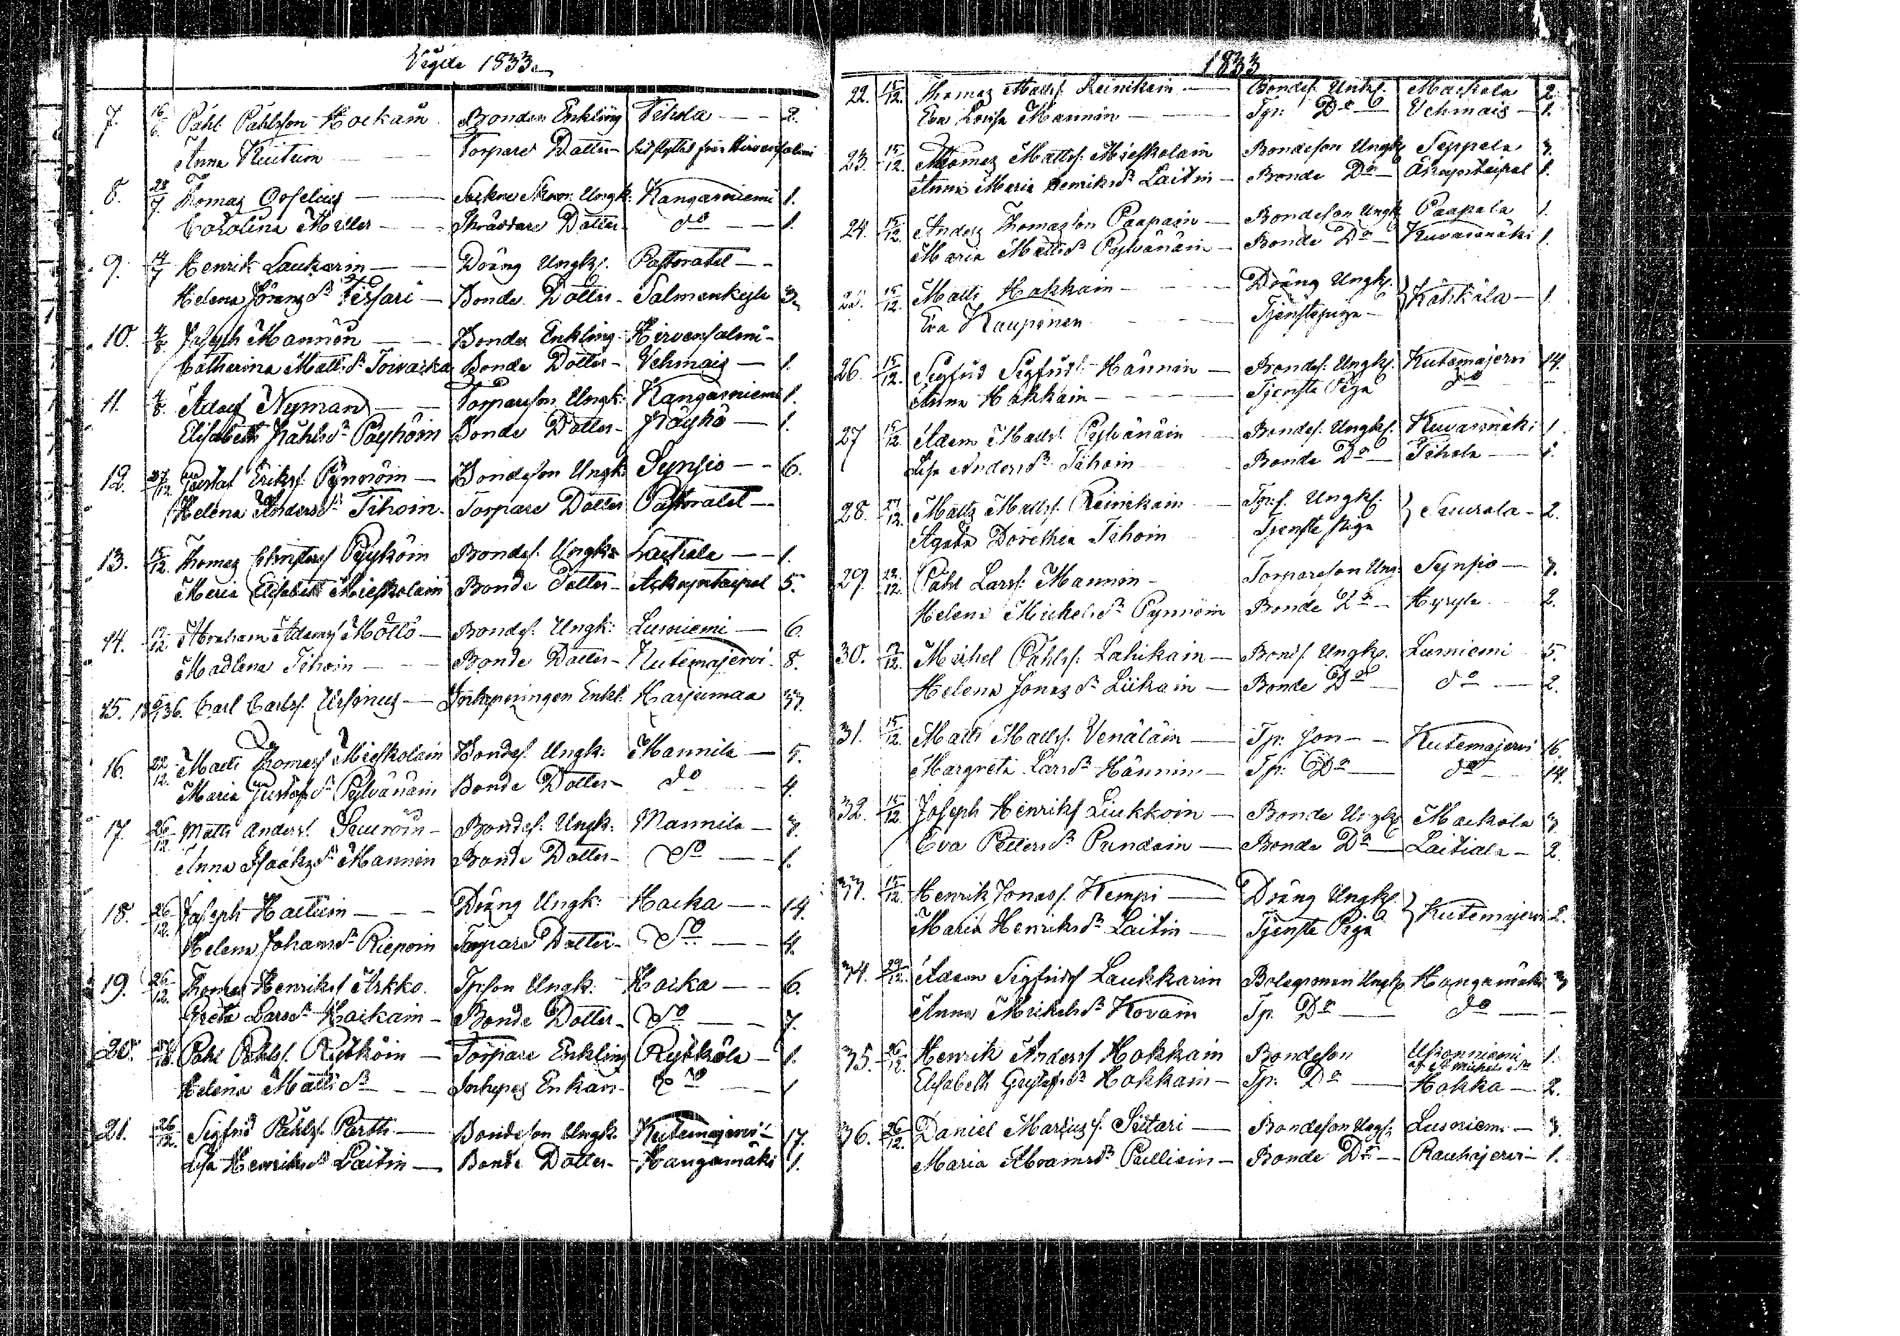 Vigde 1833.
7. 16/6. Påhl Påhlsson Hockain Bondes Enkling Tihola 2.
Anna Kuitun Torpare Dotter
8. 28/7 Thomas Orfelius Ungk: Kangasniemi 1.
Carolina Skräddare Dotter do 1.
9. 14/7 Henrik Laukarin Dräng Ungk. Pastoratet
Helena Göransdr Bonde Dotter Salmenkyle 3.
10. 4/8. Joseph Mannin Bondes Enkling Hirvensalmi
Catherina Mattsdr Toivaka Bonde Dotter Vehmais 1.
11. 4/8. Adolf Nyman Torpareson Ungk: Kangasniemi 1.
Elisabeth Påhlsdr Påyhöin Bonde Dotter 1.
12. 27/12 Gustaf Erikss. Pynnöin Bondeson Ungk: Synsio 6.
Helena Andersdr Tihoin Torpare Dotter Pastoratet
13. 15/12. Thomas Pyyköin Bondes. Ungk: 1.
Maria Elisabeth Mieskolain Bonde Dotter 5.
14. 15/12 Abraham Adamss Möttö Bondes. Ungk: Lusniemi 6.
Madlena Tihoin Bonde Dotter Kutemajervi 8.
15. Carl Carlss. Ursinus Enkl: Harjumaa 37.
16. 22/12. Matts Thomass Mieskolain Bondes. Ungk: Mannila 5.
Maria Gustafsdr Pylvänäin Bonde Dotter do 4.
17. 26/12 Matts Anderss. Bondes. Ungk: Mannila 3.
Anna Isaaksdr Mannin Bonde Dotter Do 1.
18. 26/12. Joseph Hactuin Dräng Ungk: Hocka 14.
Helena Johansdr Riepoin Torpare Dotter Do 4.
19. 26/12. Thomas Henrikss Arkko. Tpson Ungk: Hocka 6.
Greta Larsdr Hockain Bonde Dotter Do 7.
20. Påhl Påhlss. Rytköin Torpare Enkling Rytkölä 1.
Helena Mattsdr Enkan Do 1
21. 26/12. Sigfrid Påhlss. Bondeson Ungk: Kutemajervi 17.
Lisa Henriksdr Laitin Bonde Dotter Hangamäki 1.
1833
22. 15/12. Thomas Matss. Reinikain Bondes. Ungk. Mackola 2.
Eva Lovisa Mannin Tpr. Do Vehmais 1.
23. 15/12. Thomas Mattss. Mieskolain Bondeson Ungk Seppela 3.
Anna Maria Henriksdr Laitin Bonde Do 1.
24. 15/12. Anders Thomasson Paapain Bondeson Ungk Paapala 1.
Maria Mattsdr Pylvänäin Bonde Do Kuvasmäki 1.
25. 15/12. Matts Hokkain Dräng Ungk. } Kokkola 1.
Eva Kauppinen Tjensteпiga
26. 15/12. Sigfrid Sigfrids. Hännin Bondes. Ungk. Kutemajervi 14.
Anna Hokkain Tjenste Piga do
27 15/12. Adam Matss. Pylvänäin Bondes. Ungk. Kuvasmäki 1.
Lisa Andersdr Tihoin Bonde Do Tihola 1.
28. 27/12. Matts Matss. Reinikain Ungk. } Saurola 2.
Agata Dorothea Tihoin Tjenste piga
29. Påhl Larss. Mannin Torpareson Ung: Synsio 7.
Helena Mickelsdr Pynnöin Bonde Do Hyryle 2.
30. Mickel Påhlss. Lahikain Bonds. Ungk. Lusniemi 5.
Helena Jonasdr Liikain Bonde Do do 2.
31. 15/12. Matts Matss. Venäläin Tp. Son Kutemajervi 16.
Margreta Larsdr Hännin Tp: Do do 14.
32. 15/12. Joseph Henrikss Liukkoin Bonde Ungk Mackola 3.
Eva Petersdr Pundain Bonde Do Laitiala 2.
33. 15/12. Henrik Jonass. Kempi Dräng Ungk. } Kutemajervi 2.
Maria Henriksdr Laitin Tjenste Piga
34. Adam Sigfridss Laukkarin Bolagsman Ungk. Hangamäki 3
Anna Mickelsdr Kovain Tp. Do do
35. 26/12. Henrik Anderss Hokkain Bondeson 1.
Elisabeth Gustafsdr Hokkain Tp: Do Hokka 2.
36. 26/12. Daniel Mariuss. Siitari Bondeson Ungk. Lusniemi 3.
Maria Abramsdr Pullicin Bonde Do Rauhajervi 1.